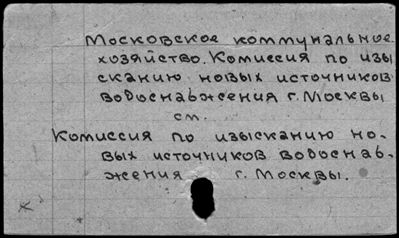 Московское коммунальное
хозяйство. Комиссия по изы
сканию новых источников
водоснабжения г. Москвы
см.
Комиссия по изысканию но-
вых источников водоснаб-
жения г. Москвы.